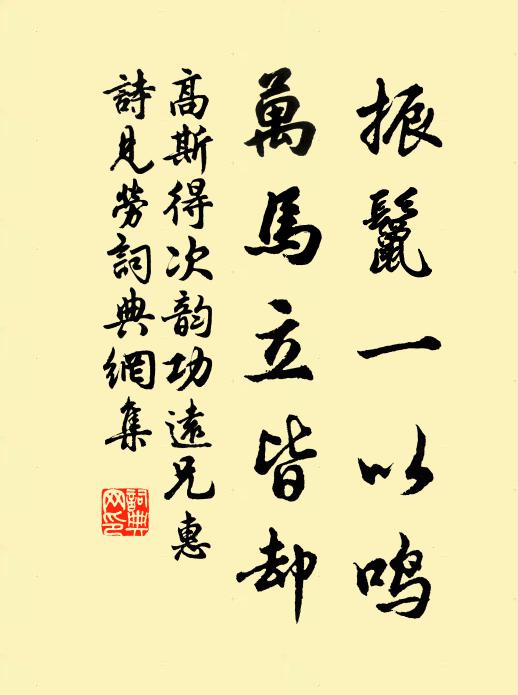 振鬣一以鸣
萬馬立皆却
高斯得次韵功遠兄惠
詩見勞詞典網集
詞典
网印